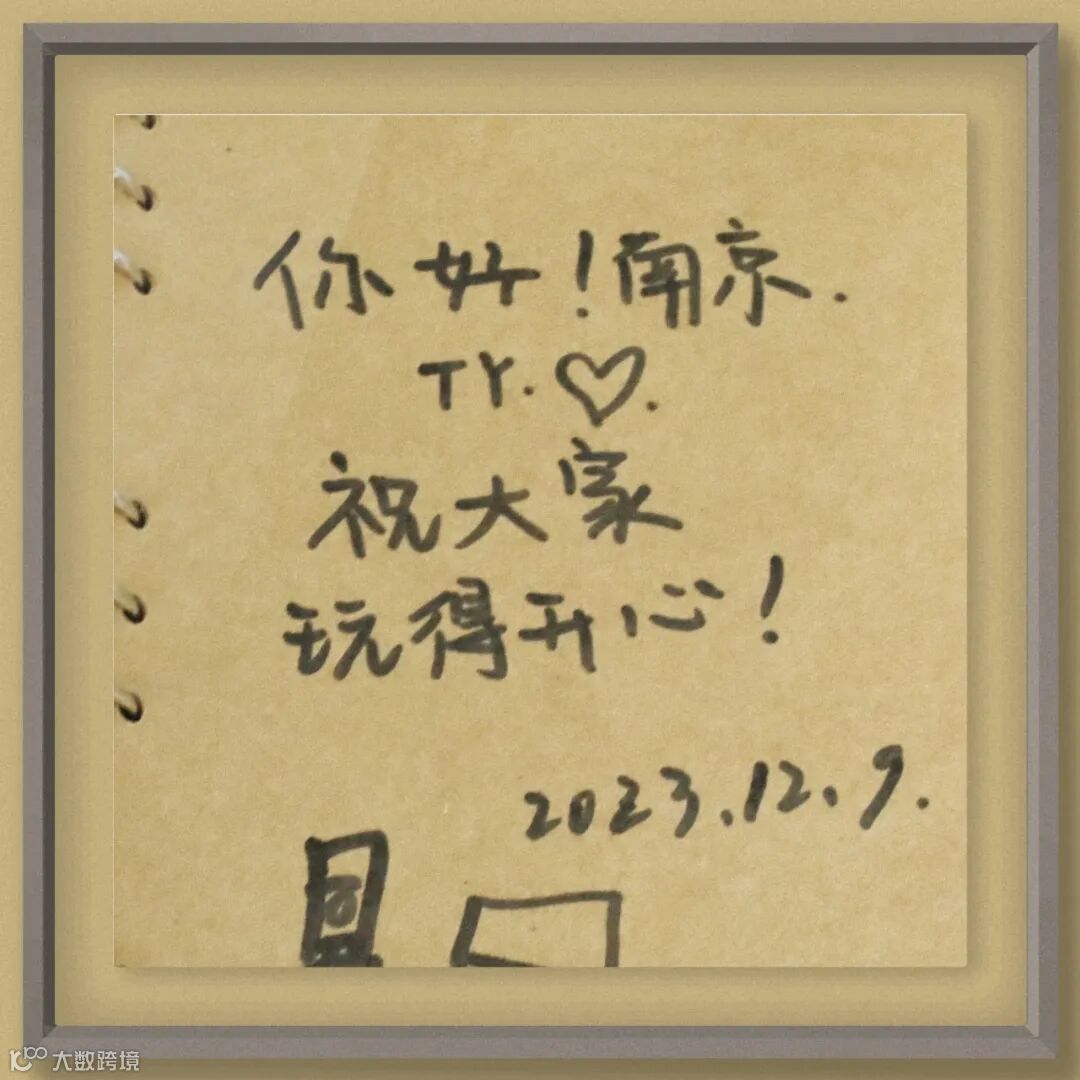 你好！南京.
TY.♡.
祝大家
玩得开心！
2023.12.9.
大数跨境